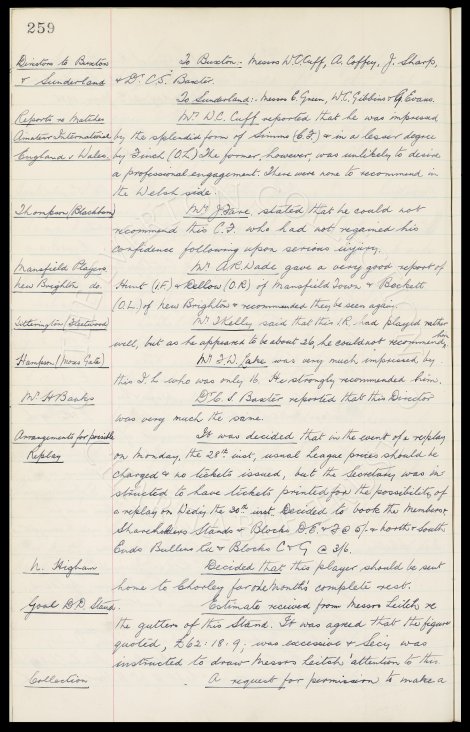 259
Directors to Buxton To Buxton:- Messrs W.C. Cuff, A. Coffey, J. Sharp,
& Sunderland & Dr. C.S. Baxter.
To Sunderland:- Messrs E. Green, W.C. Gibbins & Evans.
Reports re Matches Mr. W.C. Cuff reported that he was impressed
Amateur International by the splendid form of Simms (C.F.) & in a lesser degree
England v Wales. by Finch (O.L.) The former, however, was unlikely to desire
a professional engagement. There were none to recommend in
the Welsh side.
Thompson (Blackburn) Mr. J. Fare, stated that he could not
recommend this C.F. who had not regained his
confidence following upon serious injury.
Mansfield Players Mr. A.R. Wade gave a very good report of
New Brighton do. Hunt (I.F.) & Kellow (O.R) of Mansfield Town & Beckett
(O.L.) of New Brighton & recommended they be seen again.
Titterington (Fleetwood) Mr. T. Kelly said that this I.R. had played rather
well, but as he appeared to be about 26, he could not recommend him
Hampson (Moss Gate) Mr. F.W. Lake was very much impressed by
this I.L. who was only 16. He strongly recommended him.
Mr. H. Banks Dr. C.S. Baxter reported that this Director
was very much the same.
Arrangements for possible It was decided that in the event of a replay
Replay on Monday, the 28th inst, usual League prices should be
charged & no tickets issued, but the Secretary was in-
structed to have tickets printed for the possibility of
a replay on Wedy, the 30th inst. Decided to book the Members &
Shareholders Stands & Blocks D. E. & F @ 5/- & North & South
Ends Bullens Rd & Blocks C & G @ 3/6.
N. Higham Decided that this player should be sent
home to Chorley for one month's complete rest.
Goal D.D. Stand Estimate received from Messrs Leitch re
the gutters of this Stand. It was agreed that the figure
quoted, £62:18:9; was excessive & Secy. was
instructed to draw Messrs Leitch' attention to this.
Collection A request for permission to make a